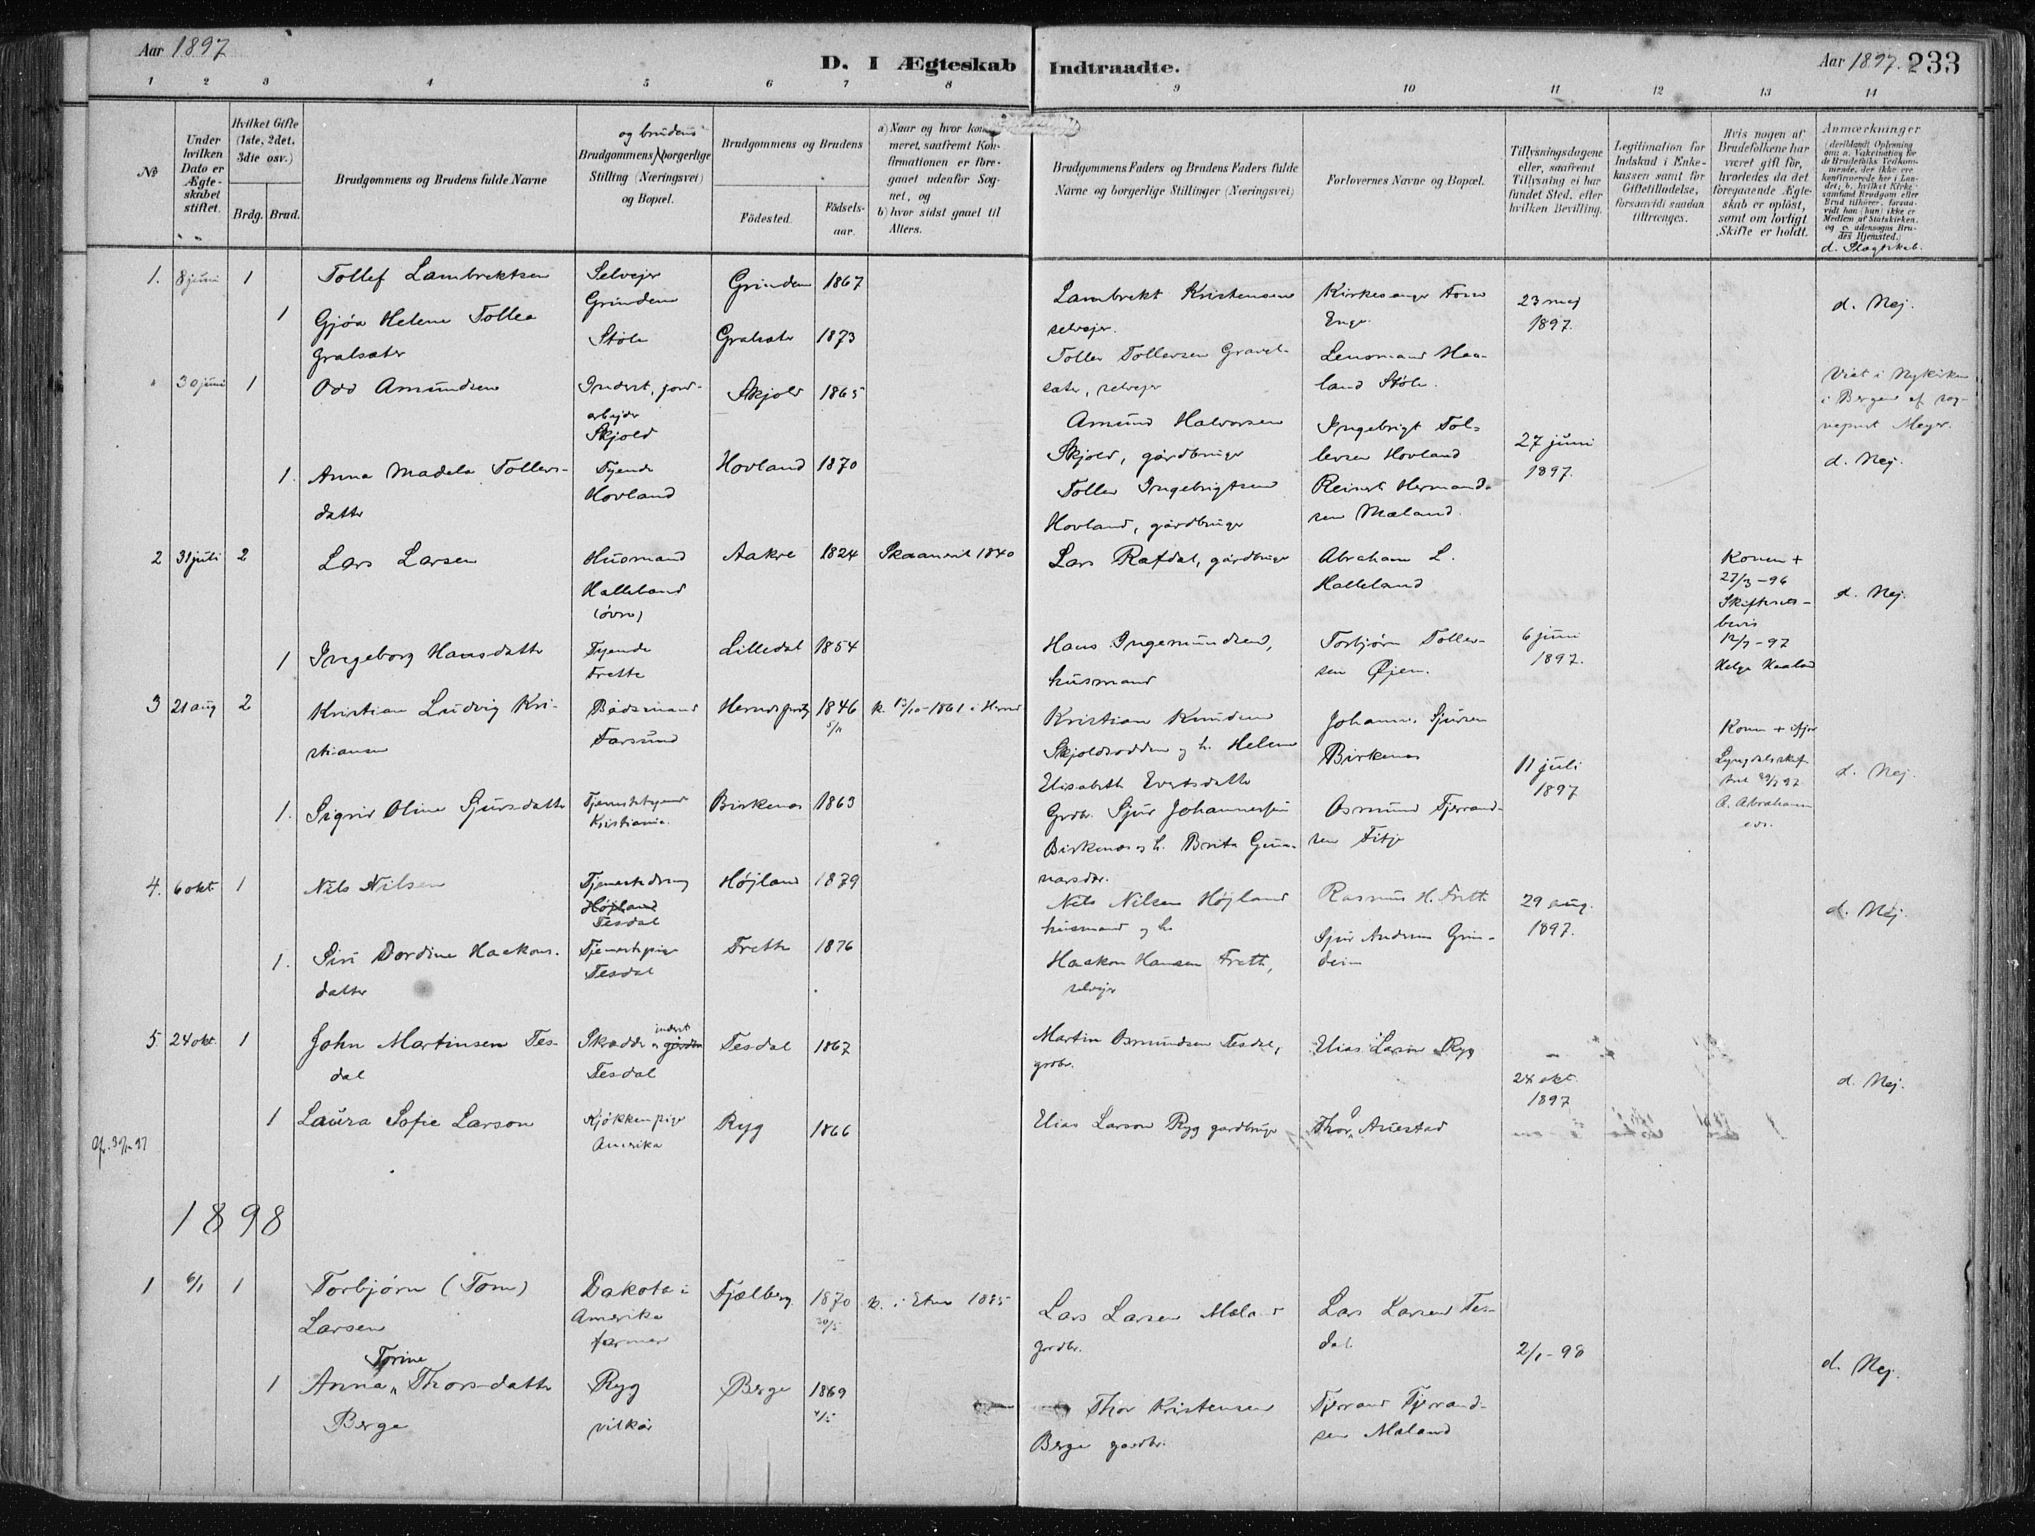 Aar 1897
D. I Ægteskab Indtraadte.
Aar 1897. 233
1 2 3 4 5 6 7 8 9 10 11 12 13 14
No
Under hvilken Dato er Ægteskabet stiftet.
Hvilket Gifte (1ste, 2det, 3die osv.)
Brdg. Brud.
Brudgommens og Brudens fulde Navne
og brudens
Brudgommens borgerlige Stilling (Næringsvei) og Bopæl.
Brudgommens og Brudens
Fødested.
Fødselsaar.
a) Naar og hvor konfirmeret, saafremt Konfirmationen er foregaaet udenfor Sognet, og
b) hvor sidst gaaet til Alters.
Brudgommens Faders og Brudens Faders fulde Navne og borgerlige Stillinger (Næringsvei)
Forlovernes Navne og Bopæl.
Tillysningsdagene eller, saafremt Tillysning ei har fundet Sted, efter hvilken Bevilling.
Legitimation for Indskud i Enkekassen samt for Giftetilladelse, forsaavidt saadan tiltrænges.
Hvis nogen af Brudefolkene har været gift før, hvorledes da det foregaaende Ægteskab er opløst, samt om lovligt Skifte er holdt.
Anmærkninger
d. Slægtskab.
1. 8 juni 1 Tollef Lambrektsen Selvejer Grinden Grinden 1867
Lambrekt Kristensen selvejer. Kirkesanger Enge 23 mej 1897. d. Nej.
1 Gjøa Helene Tollea Gralsæter Støle Gralsæter 1873
Tollev Tollevsen Gravelsæter, selvejer Lensmand Haaland Støle.
30 juni 1 Odd Amundsen Inderst, jordarbejder Skjold Skjold 1865
Amund Halvorsen Skjold, gårdbruger Ingebrigt Tollevsen Hovland 27 juni 1897. Viet i Nykirken i Bergen af sognepræst Meyer.
d. Nej.
1. Anna Madela Tollevsdatter Tjende Hovland Hovland 1870
Tollev Ingebrigtsen Hovland, gårdbruger Reinert Hermandsen Mæland.
2 31 juli 2 Lars Larsen Husmand Halleland (øvre) Aakre 1824 Skaanevik 1840
Lars Rafdal, gårdbruger Abraham L. Halleland Konen + 27/3-96 Skifteretsbevis 12/7-97 Helge Haaland d. Nej.
1 Ingeborg Hansdatter Tjende Frette Lilledal 1854
Hans Ingemundsen, husmand Torbjørn Tollevsen Øjen. 6 juni 1897.
3 21 aug 2 Kristian Ludvig Kristiansen Bådsmand Farsund 1846 5/11
Kristian Knudsen Skjoldsodden og h. Helene Elisabeth Evertsdatter Johannes Sjursen Birkenes 11 juli 1897 Konen + d. Nej.
1. Sigrid Oline Sjursdatter Tjenestetyende Kristiania. Birkenes 1863
Grdbr. Sjur Johannessen Birkenes og h. Brita Gunnarsdtr. Osmund Tjerandsen Fitje
4. 6 okt 1 Nils Nilsen Tjenestedreng Højland Tesdal Højland 1879
Nils Nilsen Højland husmand og h. Rasmus H. Frette 29 aug. 1897. d. Nej.
1. Siri Dordine Haakonsdatter Tjenestepige Tesdal Frette 1876
Haakon Hansen Frette, selvejer Sjur Andreas Grindeim
5 24 okt. 1 John Martinsen Tesdal Skrædder inderst Tesdal Tesdal 1867
Martin Osmundsen Tesdal, grdbr. Elias Larsen Ryg 24 okt. 1897 d. Nej.
1 Laura Sofie Larson Kjøkkenpige Amerika Ryg 1866
Elias Larson Ryg gardbruger Thor O Auestad
1898
1 6/1 1 Torbjørn (Tom) Larsen Dakota i Amerika farmer Fjælberg 1870 30/5 k. i Etne 1885
Lars Larsen Mæland grdbr. Lars Larsen Tesdal 2/1-98 d. Nej.
1 Anna Torine Thorsdatter Berge Ryg vilkår Berge 1869
Thor Kristensen Berge gardbr. Tjerand Tjerandsen Mæland